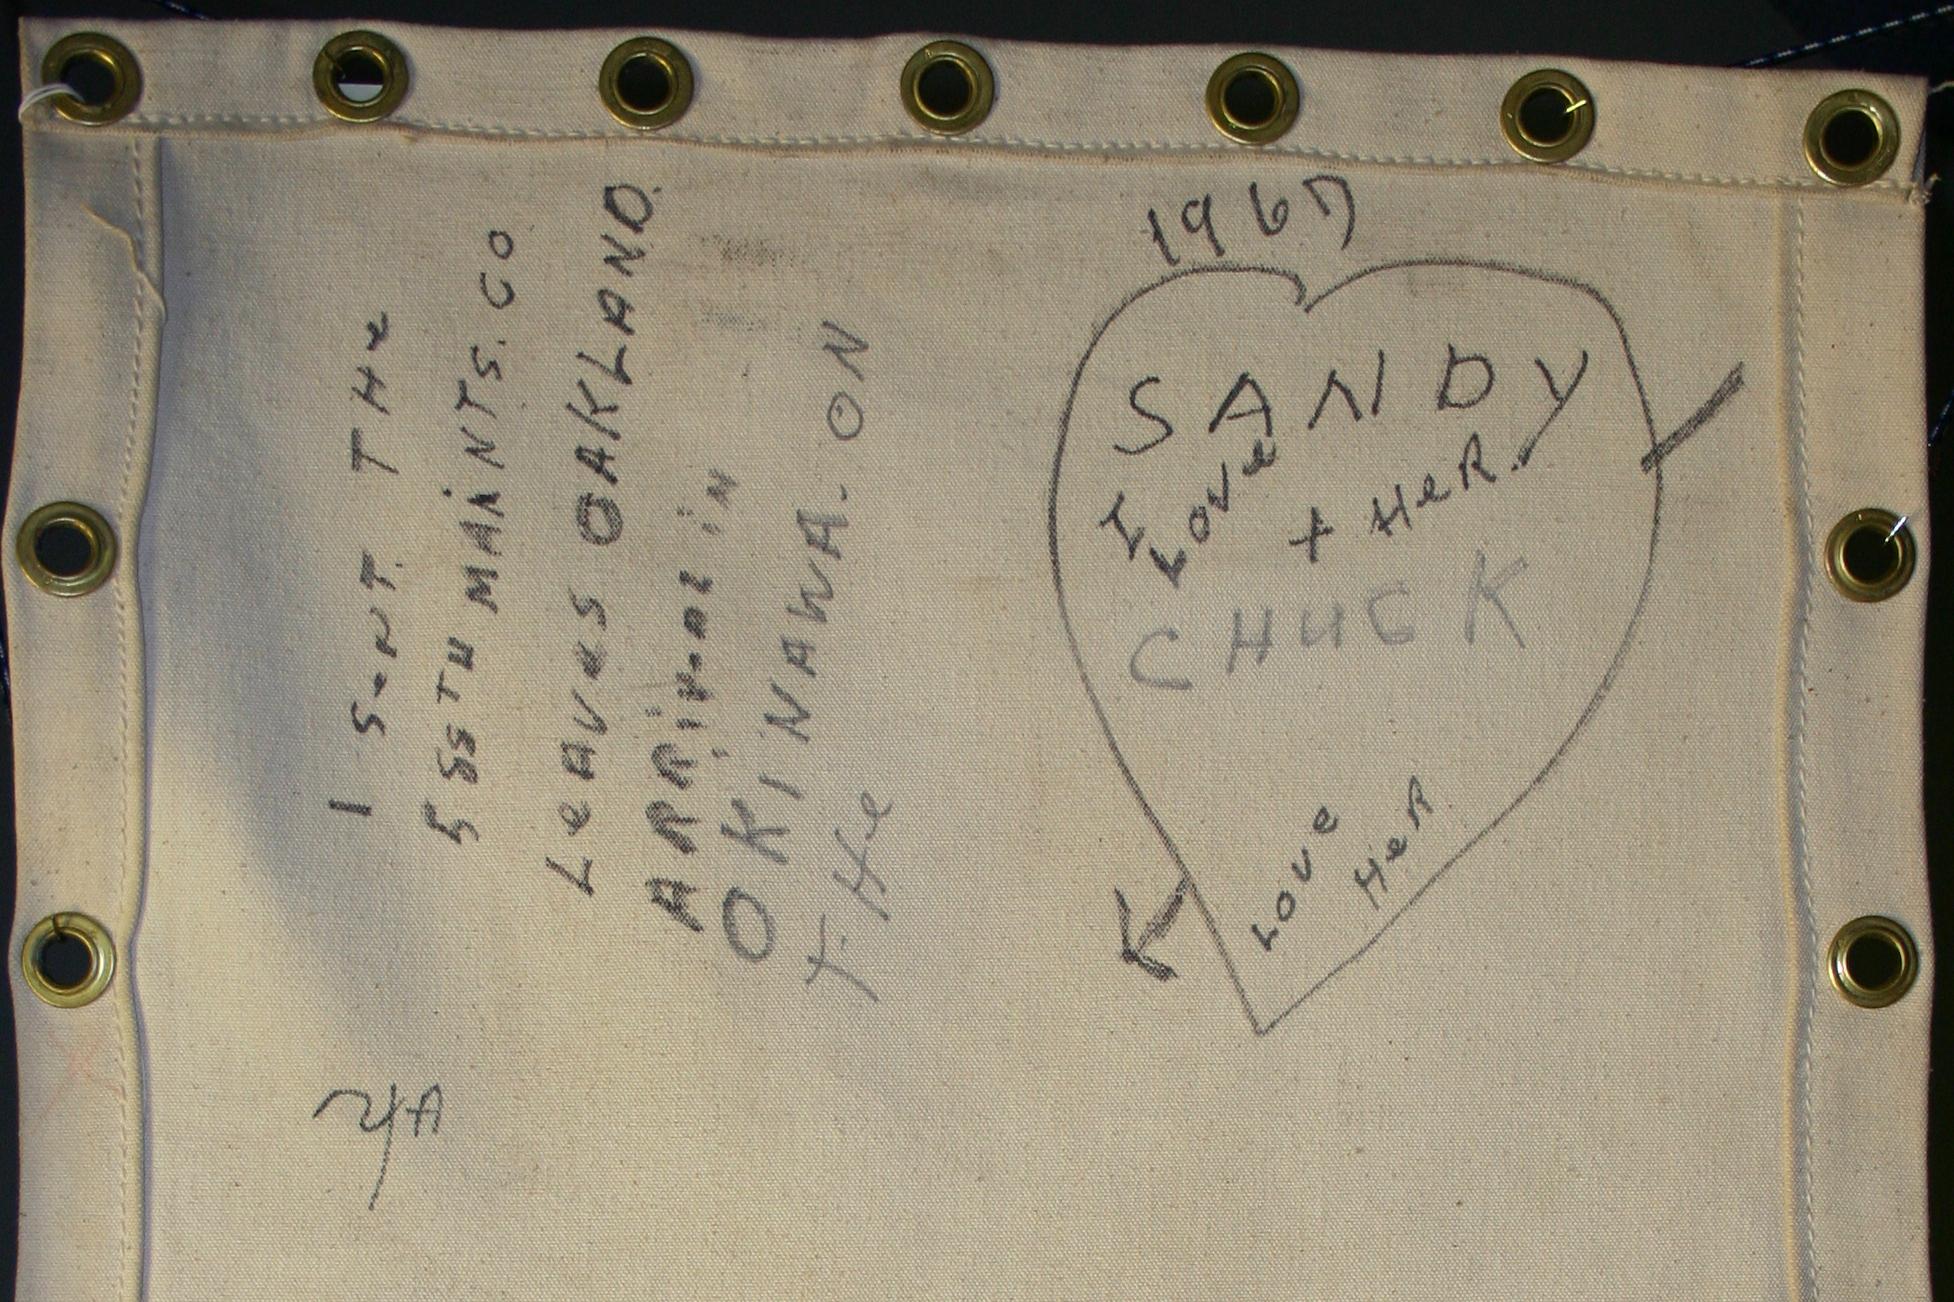 1967
SANDY
I LOVe
+ HeR.
CHUCK
LOVe
HeR
I SeNT THe
555TH MAiNTS. CO
LeAVeS OAKLAND.
ARRiVeAL iN
OKINAWA. ON
THe